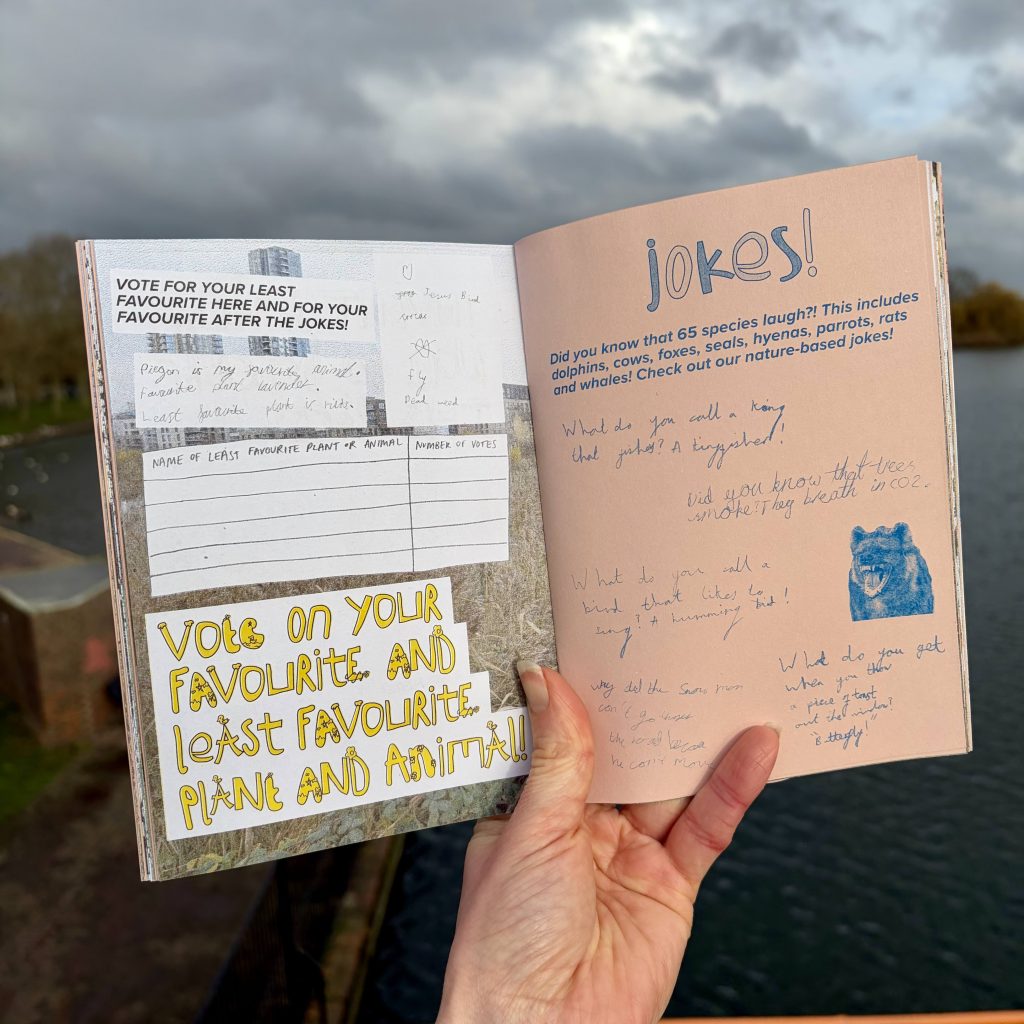 VOTE FOR YOUR LEAST
FAVOURITE HERE AND FOR YOUR
FAVOURITE AFTER THE JOKES!
Piegon is my favourite animal.
Favourite plant lavender.
Least favourite plant is
Jesus Bird
fly
Dead weed
NAME OF LEAST FAVOURITE PLANT OR ANIMAL
NUMBER OF VOTES
VOTE ON YOUR
FAVOURITE AND
LEAST FAVOURITE
PLANT AND ANIMAL!
jokes!
Did you know that 65 species laugh?! This includes
dolphins, cows, foxes, seals, hyenas, parrots, rats
and whales! Check out our nature-based jokes!
What do you call a king
that fishes? A kingfisher!
Did you know that trees
smoke? They breath in CO2.
What do you call a
bird that likes to
sing? A humming bird!
What do you get
when you throw
a piece of toast
out the window?
"Butterfly!"
why did the Snow man
the
he can't move